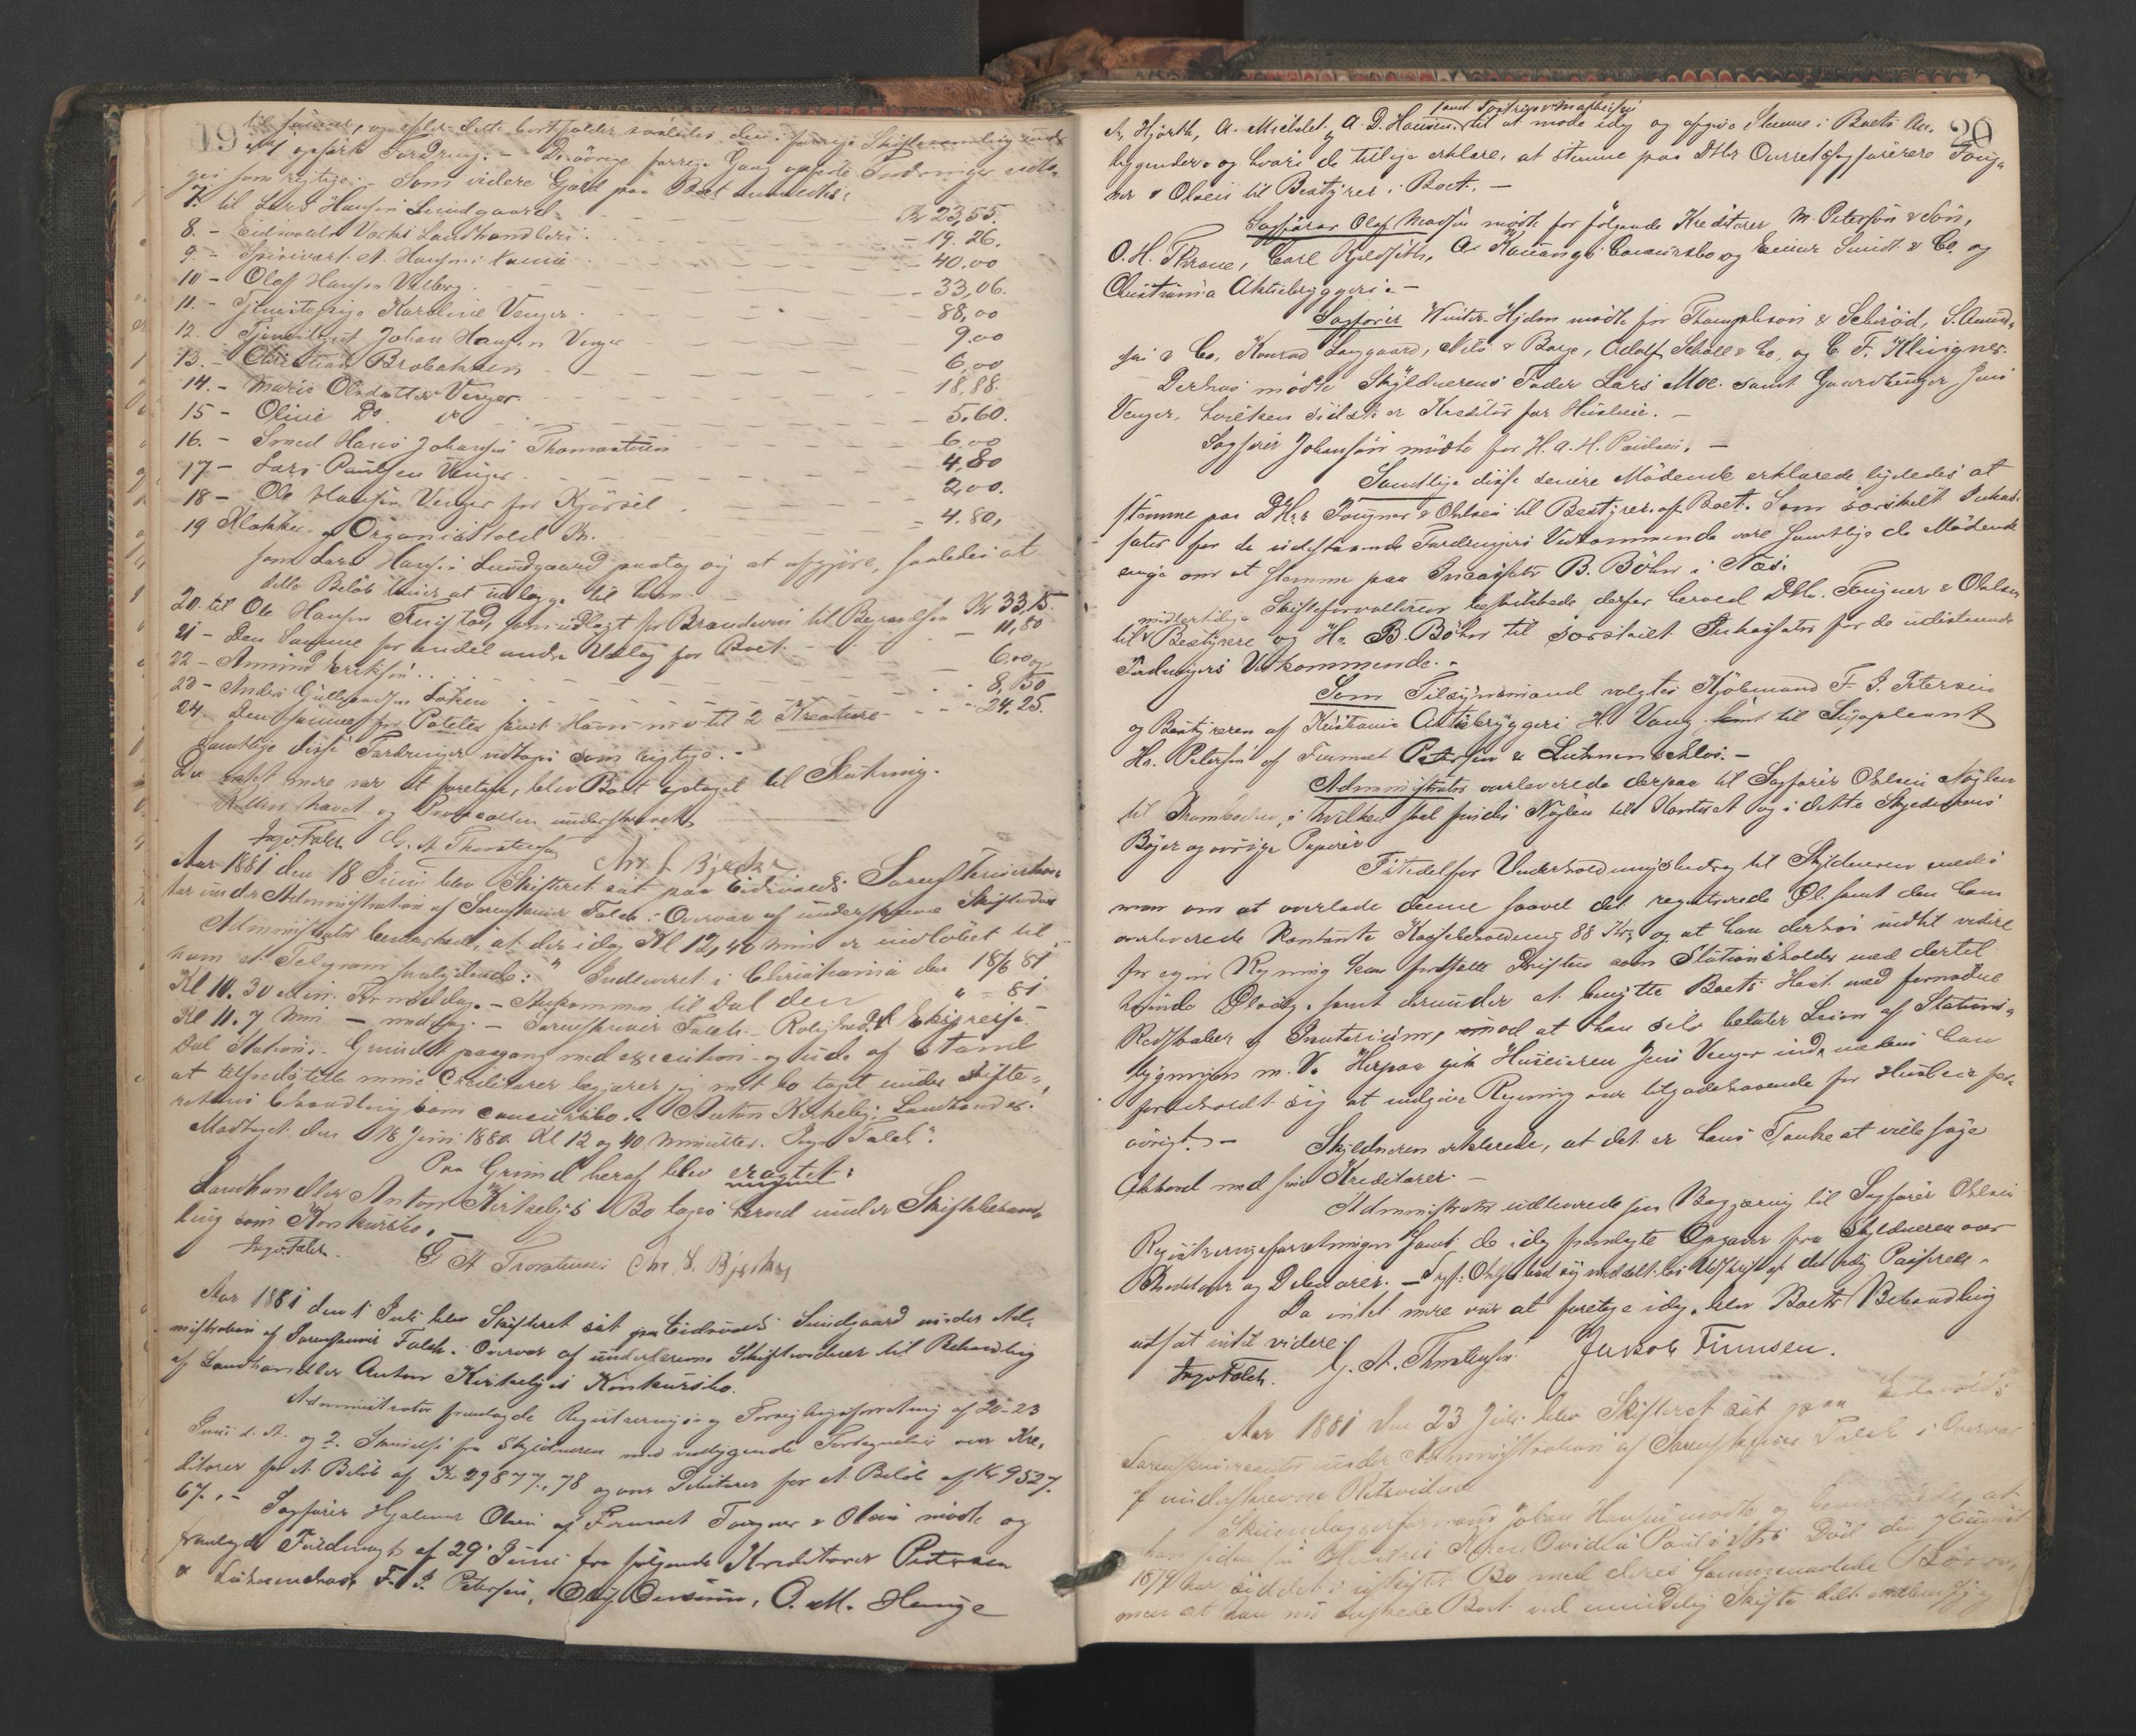 19
til            , og efter dette bortfalder saaledes den i forrige Skiftesamling under
     opførte Fordring. – De øvrige forrige Gang opførte Fordringer vedto-
ges som rigtige. – Som videre Gjæld paa Boet anmeldtes:
7. til Lars Hansen Lundgaard Kr 23,55.
8. – Eidsvolds Værks Landhandleri – 19.26.
9. –            A. Hansen i            – 40.00
10 – Olaf Hansen Vilberg – 33,06.
11. – Tjenestepige Karoline Venger – 88,00
12. Tjenestegut Johan Hansen Venger 9,00
13. – Christian Brobakken 6,00
14. – Marie Olsdatter Venger 18,88.
15 – Oline Do do 5,60.
16. – Smed Hans Johansen Thomasteien 6,00
17 – Lars Paulsen Venger 4,80
18 – Ole Hansen Venger for Kjørsel 2,00.
19 Klokker- og Organisttold Kr. – 4.80,
som Lars Hansen Lundgaard paatog sig at afgjøre, saaledes at
dette Beløb bliver at udlægge til ham.
20. til Ole Hansen Finstad, som udlagt for Brændevin til Begravelsen Kr 33,15.
21 – Den Samme for endel andre Udlæg for Boet – 11,80
22 – Amund Eriksen 6.00 og
23 – Anders Gulbrandsen Løken 8,50
24. Den samme for Poteter samt Havn m v til 2 Kreature – 24,25.
Samtlige disse Fordringer vedtages som rigtige. –
Da intet mere var at foretage, blev Boet optaget til Slutning.
Retten hævet og Protocollen underskrevet
Inge Falch G. A. Thorstensen Chr L Bjerke
Aar 1881 den 18 Juni blev Skifteret sat paa Eidsvolds Sorenskriverkon-
tor under Administration af Sorenskriver Falch i Overvær af underskrevne Skiftevidner
Administrator bemærkede, at der idag Kl 12,40 min er indløbet til
ham et Telegram saalydende: " Indleveret i Christiania den 18/6 81
Kl 10. 30 Min. Formiddag. – Ankommen til Dal den " – 81
Kl 11. 7 Min – middag. – Sorenskriver Falch. Rolighed pr Express
Dal Station. – Grundet paagang med execution og ude af Stand
at tilfredsstille mine Creditorer begjærer jeg mit bo taget under skifte-
rettens behandling som concursbo. Anton Kirkeby, Landhandler.
Modtaget den 18 Juni 1880 Kl 12 og 40 Minutter. Inge Falch".
Paa Grund heraf blev eragtet:
Landhandler Anton Kirkebys Bo tages herved under Skiftebehand-
ling som Konkursbo. –
Inge Falch. G A Thorstensen Chr L. Bjerke
Aar 1881 den 1 Juli blev Skifteret sat paa Eidsvolds Sundgaard under Ad-
ministration af Sorenskriver Falch i Overvær af underskrevne Skiftevidner til Behandling
af Landhandler Anton Kirkebyes Konkursbo.
Administrator fremlagde Registrerings og Forseglingsforretning af 20–23
Juni d. A. og 2. Skrivelse fra Skyldneren med vedliggende Fortegnelser over Kre-
ditorer for et Beløb af Kr 29877,78 og over Debitorer for et Beløb af Kr 9527.
67. – Sagfører Hjalmar Olsen af Firmaet Tougner & Olsen mødte og
fremlagde Fuldmagt af 29 Juni fra følgende Kreditorer Petersen
&            F. J. Petersen,            , O. M. Hauge
20
samt
A. Hjorth, A. Michelet, A. D. Hansen til at møde idag og afgive Stemme i Boets An-
liggender og hvori de tillige erklære, at stemme paa DHr Overretssagførere Toug-
ner & Olsen til Bestyrer i Boet. –
Sagfører Olaf Madsen mødte for følgende Kreditorer M. Petersen & Søn,
O. H. Throne, Carl Kjeldseth,            Concursbo og Einar Smidt & Co. og
Christiania Aktiebryggeri. –
Sagfører Winter-Hjelm mødte for Thompson & Schrød, S. Amund-
sen & Co, Konrad Langaard, Nils            , Adolf Schøll & Co, og C. F. Klingner.
Derhos mødte Skyldnerens Fader Lars Moe samt Gaardbruger Jens
Venger, hvilken sidste er Kreditor for Husleie. –
Sagfører Johansen mødte for H. A. H. Paulsen. –
Samtlige disse senere Mødende erklærede ligeledes at
stemme paa DHrr Tougner & Ohlsen til Bestyrer af Boet. Som særskilt Inkas-
sator for de udestaaende Fordringers Vedkommende vare samtlige de Mødende
enige om at stemme paa Incassator B. Bøhn i Næs.
Skifteforvalteren beskikkede derfor herved DHr. Tougner & Ohlsen
midlertidige
til Bestyrere og Hr B. Bøhn til særskilt Inkassator for de udestaaende
Fordringers Vedkommende. –
Som Tilsynsmænd valgtes Kjøbmand F. J. Petersen
og Bestyreren af Kristiania Aktiebryggeri H. Vang samt til Suppleant
Hr. Petersen af Firmaet Petersen &            . –
Administrator overleverede derpaa til Sagfører Ohlsen Nøglen
til Krambodens, i hvilken skal findes Nøglen til Kontoret og i dette Skyldnerens
Bøger og øvrige Papirer
Istedetfor Underholdningsbidrag til Skyldneren enedes
man om at overlade denne saavel det registrerede Øl samt den ham
overleverede kontante Kassebeholdning 88 Kr, og at han derhos indtil videre
for egen Regning kan fortsætte Driften som Stationsholder med dertil
hørende            , samt derunder at benytte Boets Hest med fornødne
Redskaber og Inventarium, imod at han selv betaler Leien af Stations-
bygningen m. V. Herpaa gik Huseieren Jens Venger ind, medens han
forbeholdt sig at indgive Regning over tilgodehavende for Husleie for-
øvrigt. – Skyldneren erklærede, at det er hans Tanke at ville søge
Akkord med sine Kreditorer. –
Administrator udleverede paa Begjæring til Sagfører Ohlsen
Registreringsforretningen samt de idag fremlagte Opgaver fra Skyldneren over
Kreditorer og Debitorer. – Sagf: Ohlsen bad sig meddelt            Udskrift af det idag Passerede. –
Da intet mere var at foretage idag, blev Boets Behandling
udsat indtil videre.
Inge Falch. G. A. Thorstensen Jakob Finnsen.
Aar 1881 den 23 Juli blev Skifteret sat paa Eidsvolds
Sorenskrivercontor under Administration af Sorenskriver Falch i Overvær
af underskrevne Retsvidner
           Johan Hansen mødte og bemærkede, at
han siden sin Hustru Karen            Død den
1879 har siddet i uskiftet Bo med deres sammenavlede Børn,
men at han nu ønskede Boet ved mindelig Skifte delt mellem sig